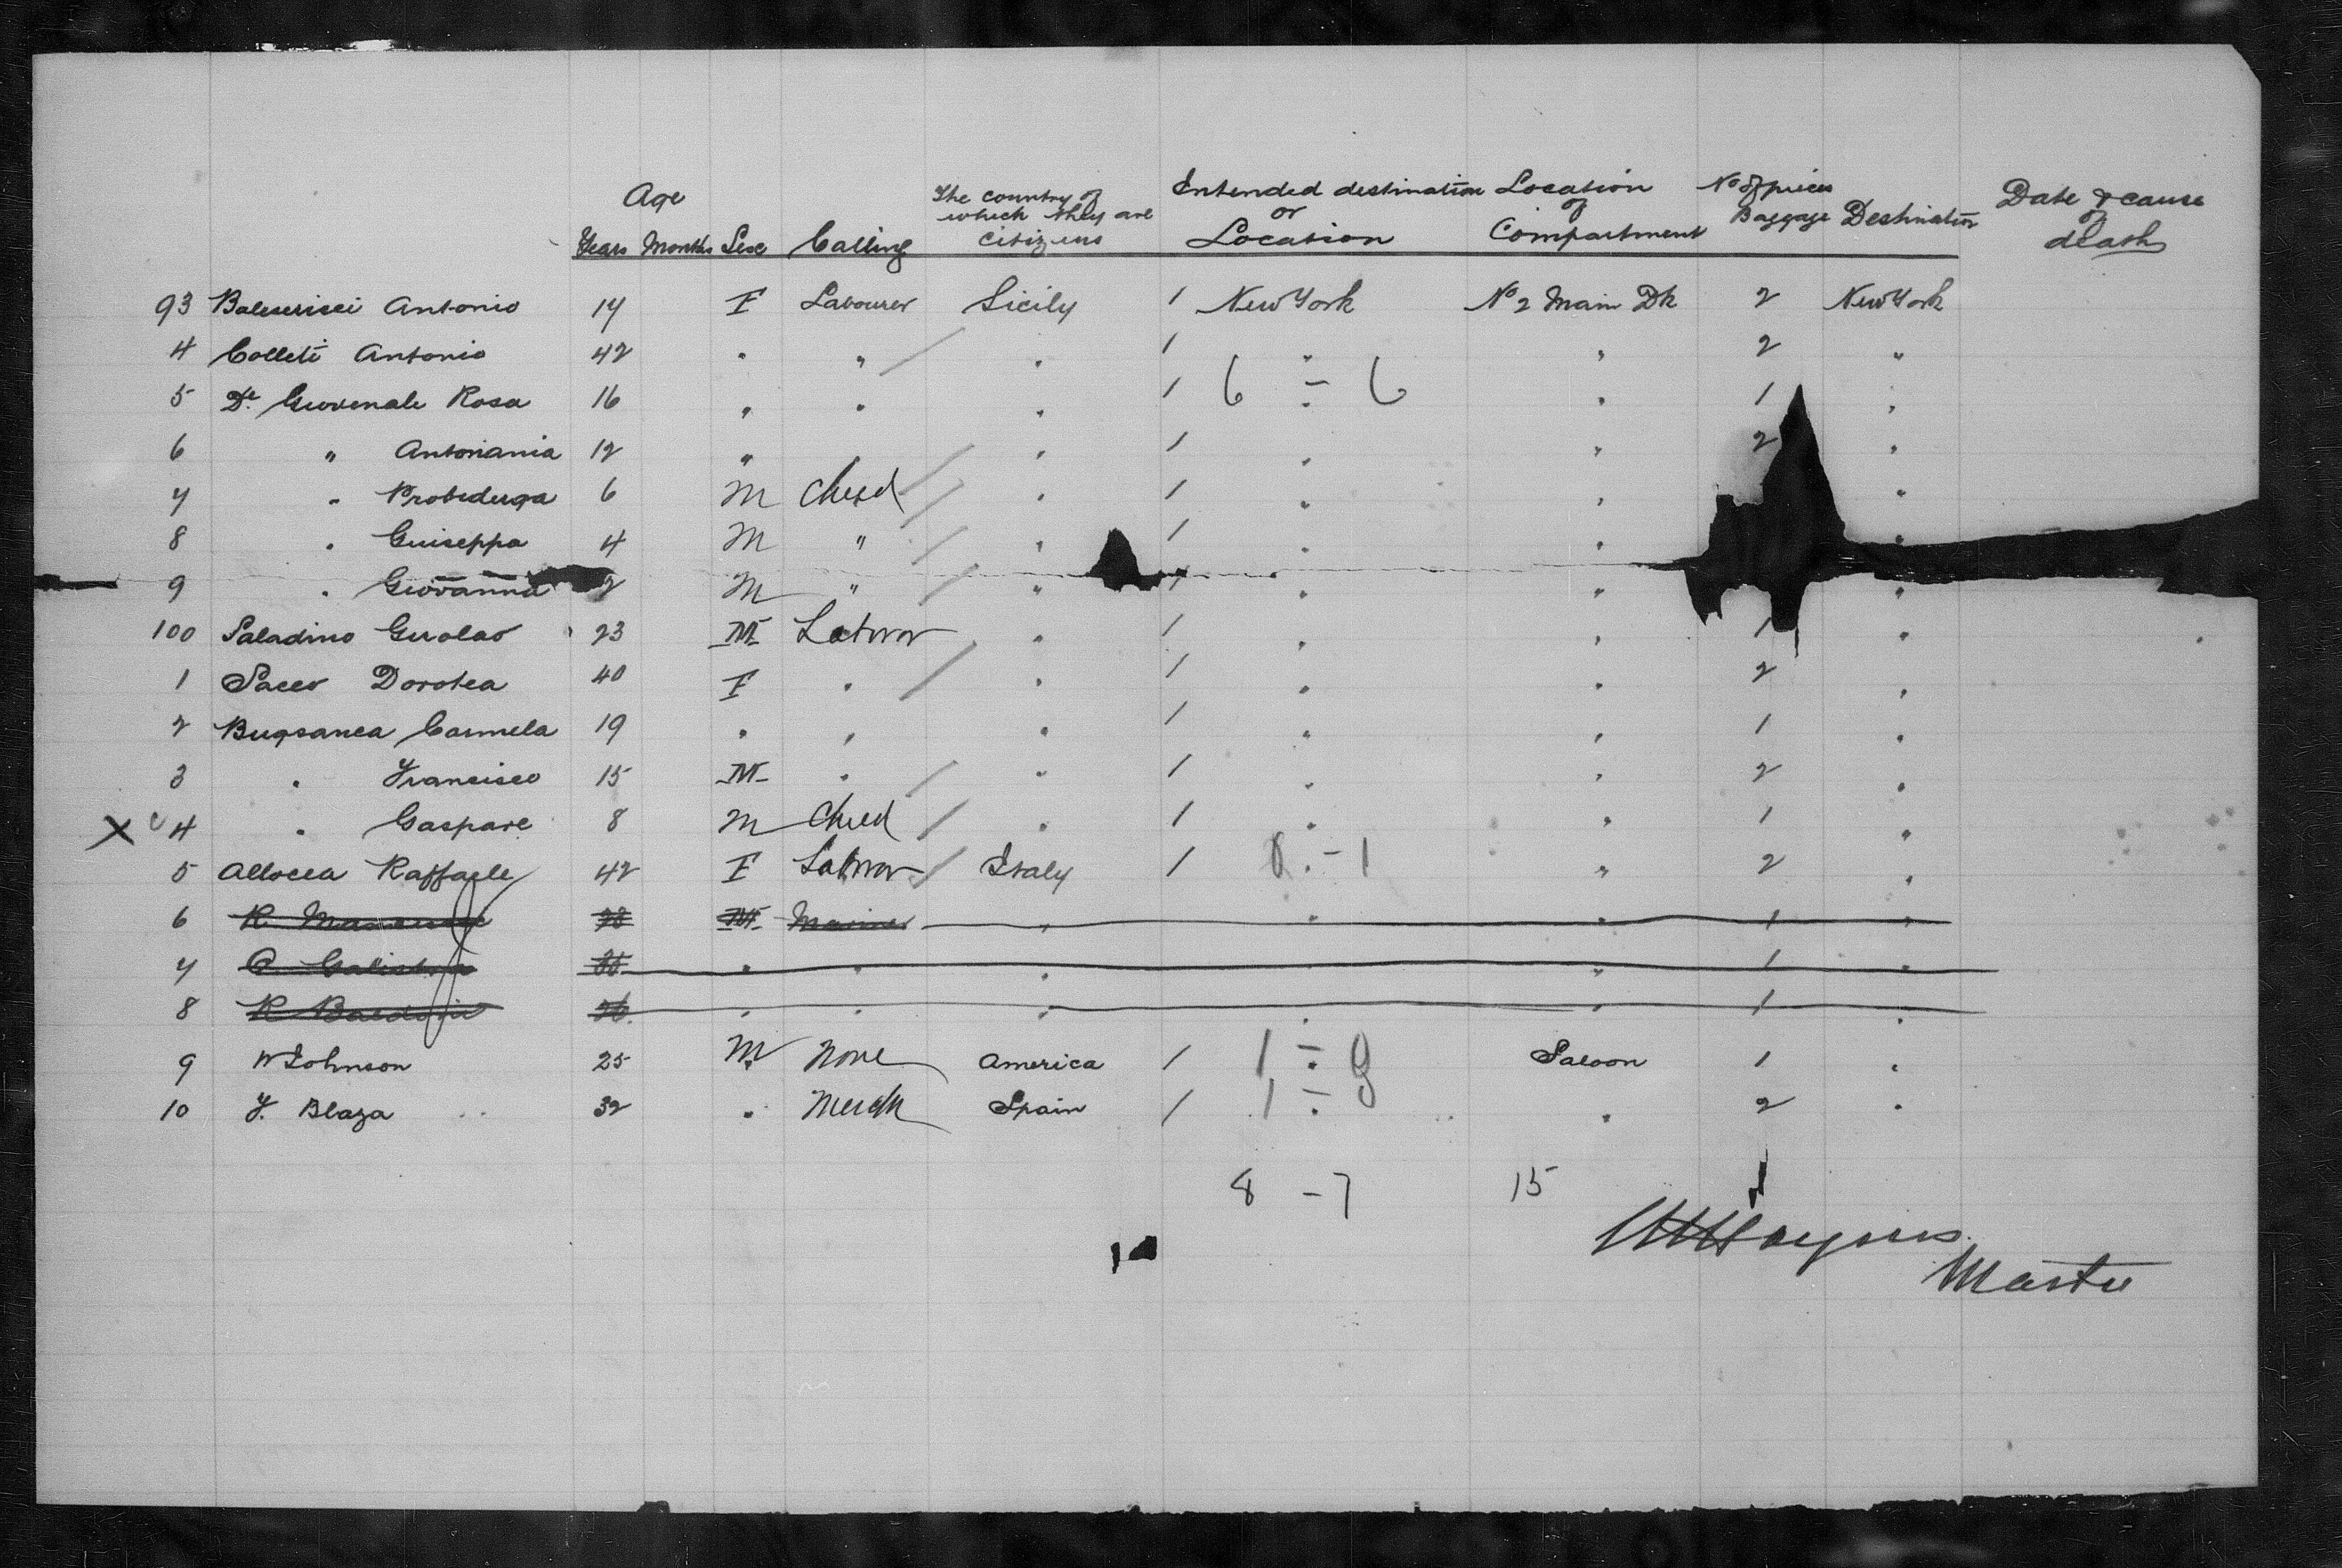 Age
Years Months Sex Calling The country of which they are Citizens Intended destination or Location Location of Compartment No of pieces Baggage Destination Date & cause of death
93 Antonio 14 F Labourer Sicily 1 New York No 2 Main Dk 2 New York
4 Colleti Antonio 42 " " " 1 " " 2 "
6 - 6
5 Di Giovenale Rosa 16 " " " 1 " " 1 "
6 " Antoniania 12 " " 1 " " 2 "
7 " 6 M Child " 1 " " "
8 " Guiseppa 4 M " " 1 " " "
9 " Giovanna 2 M " " 1 " " "
100 Saladino 23 M Labourer " 1 " " 1 "
1 Sacco Dorotea 40 F " " 1 " " 2 "
2 Carmela 19 " " " 1 " " 1 "
3 " Francisco 15 M " " 1 " " 2 "
X c 4 " Gaspare 8 M Child " 1 " " 1 "
5 Allocca Raffaele 42 F Labourer Italy 1 0 - 1 " 2 "
6 R M Mariner " " " 1 "
7 " " " " 1 "
8 R " " " " " 1 "
9 W Johnson 25 M None America 1 1 - 0 Saloon 1 "
10 F. Blaza 32 " Merch Spain 1 1 - " 2 "
8 - 7 15
Master